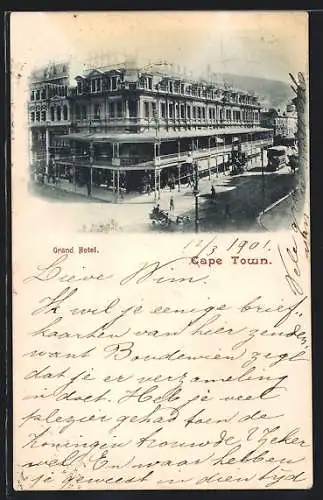 Grand Hotel.
12/3 1901.
Cape Town.
Lieve Wim.
Ik wil je eenige brief=
kaarten van hier zenden,
want Boudewien zegt
dat je er verzameling
in doet. Heb je veel
plezier gehad toen de
Koningin trouwde? Zeker
wel. En waar hebben
je geweest in dien tyd
Vele
van